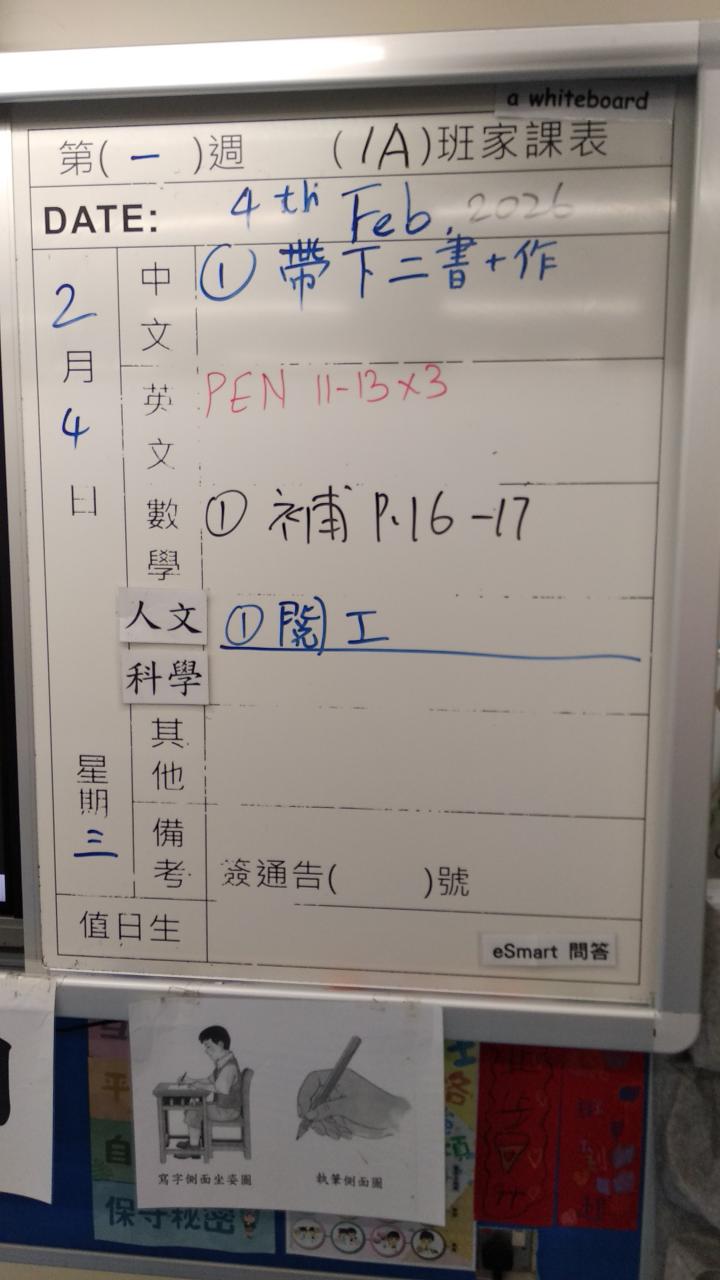 a whiteboard
第( 一 )週 (1A)班家課表
DATE: 4th Feb. 2026
2月4日
星期三
中文 ① 帶下二書+作
英文 PEN 11-13x3
數學 ① 補 P.16-17
人文
科學
① 閱工
其他
備考 簽通告( )號
值日生
eSmart 問答
寫字側面坐姿圖 執筆側面圖
保守秘密